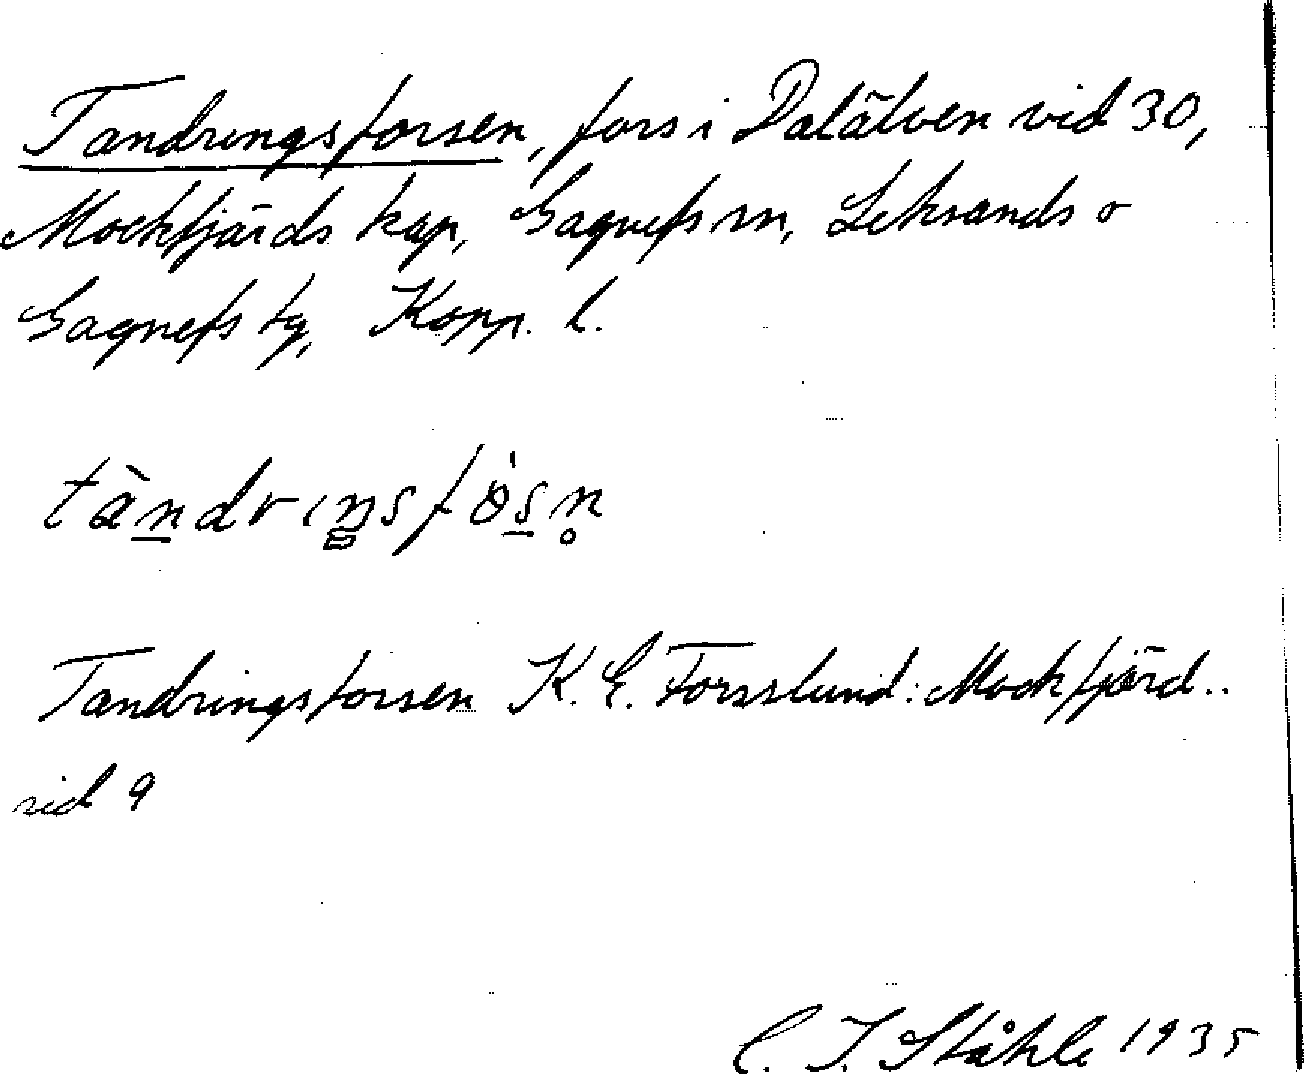 Tandringsforsen, fors i Dalälven vid 30,
Mockfjärds kap, Gagnefs sn, Leksands o
Gagnefs tg, Kopp. l.
tàndrıŋsfòsn̥
Tandringsforsen K. E. Forsslund: Mockfjärd..
sid 9
C. I. Ståhle 1935